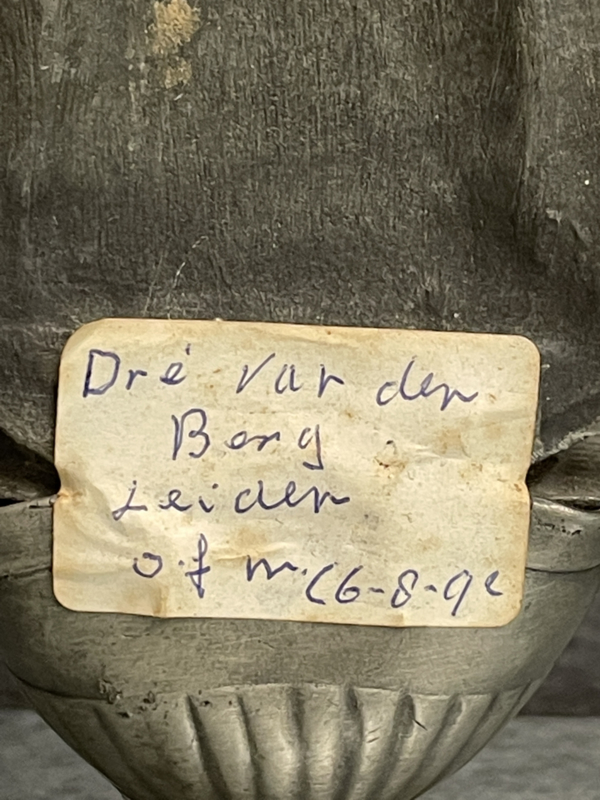 Dré van den
Berg
Leiden
o.f m.